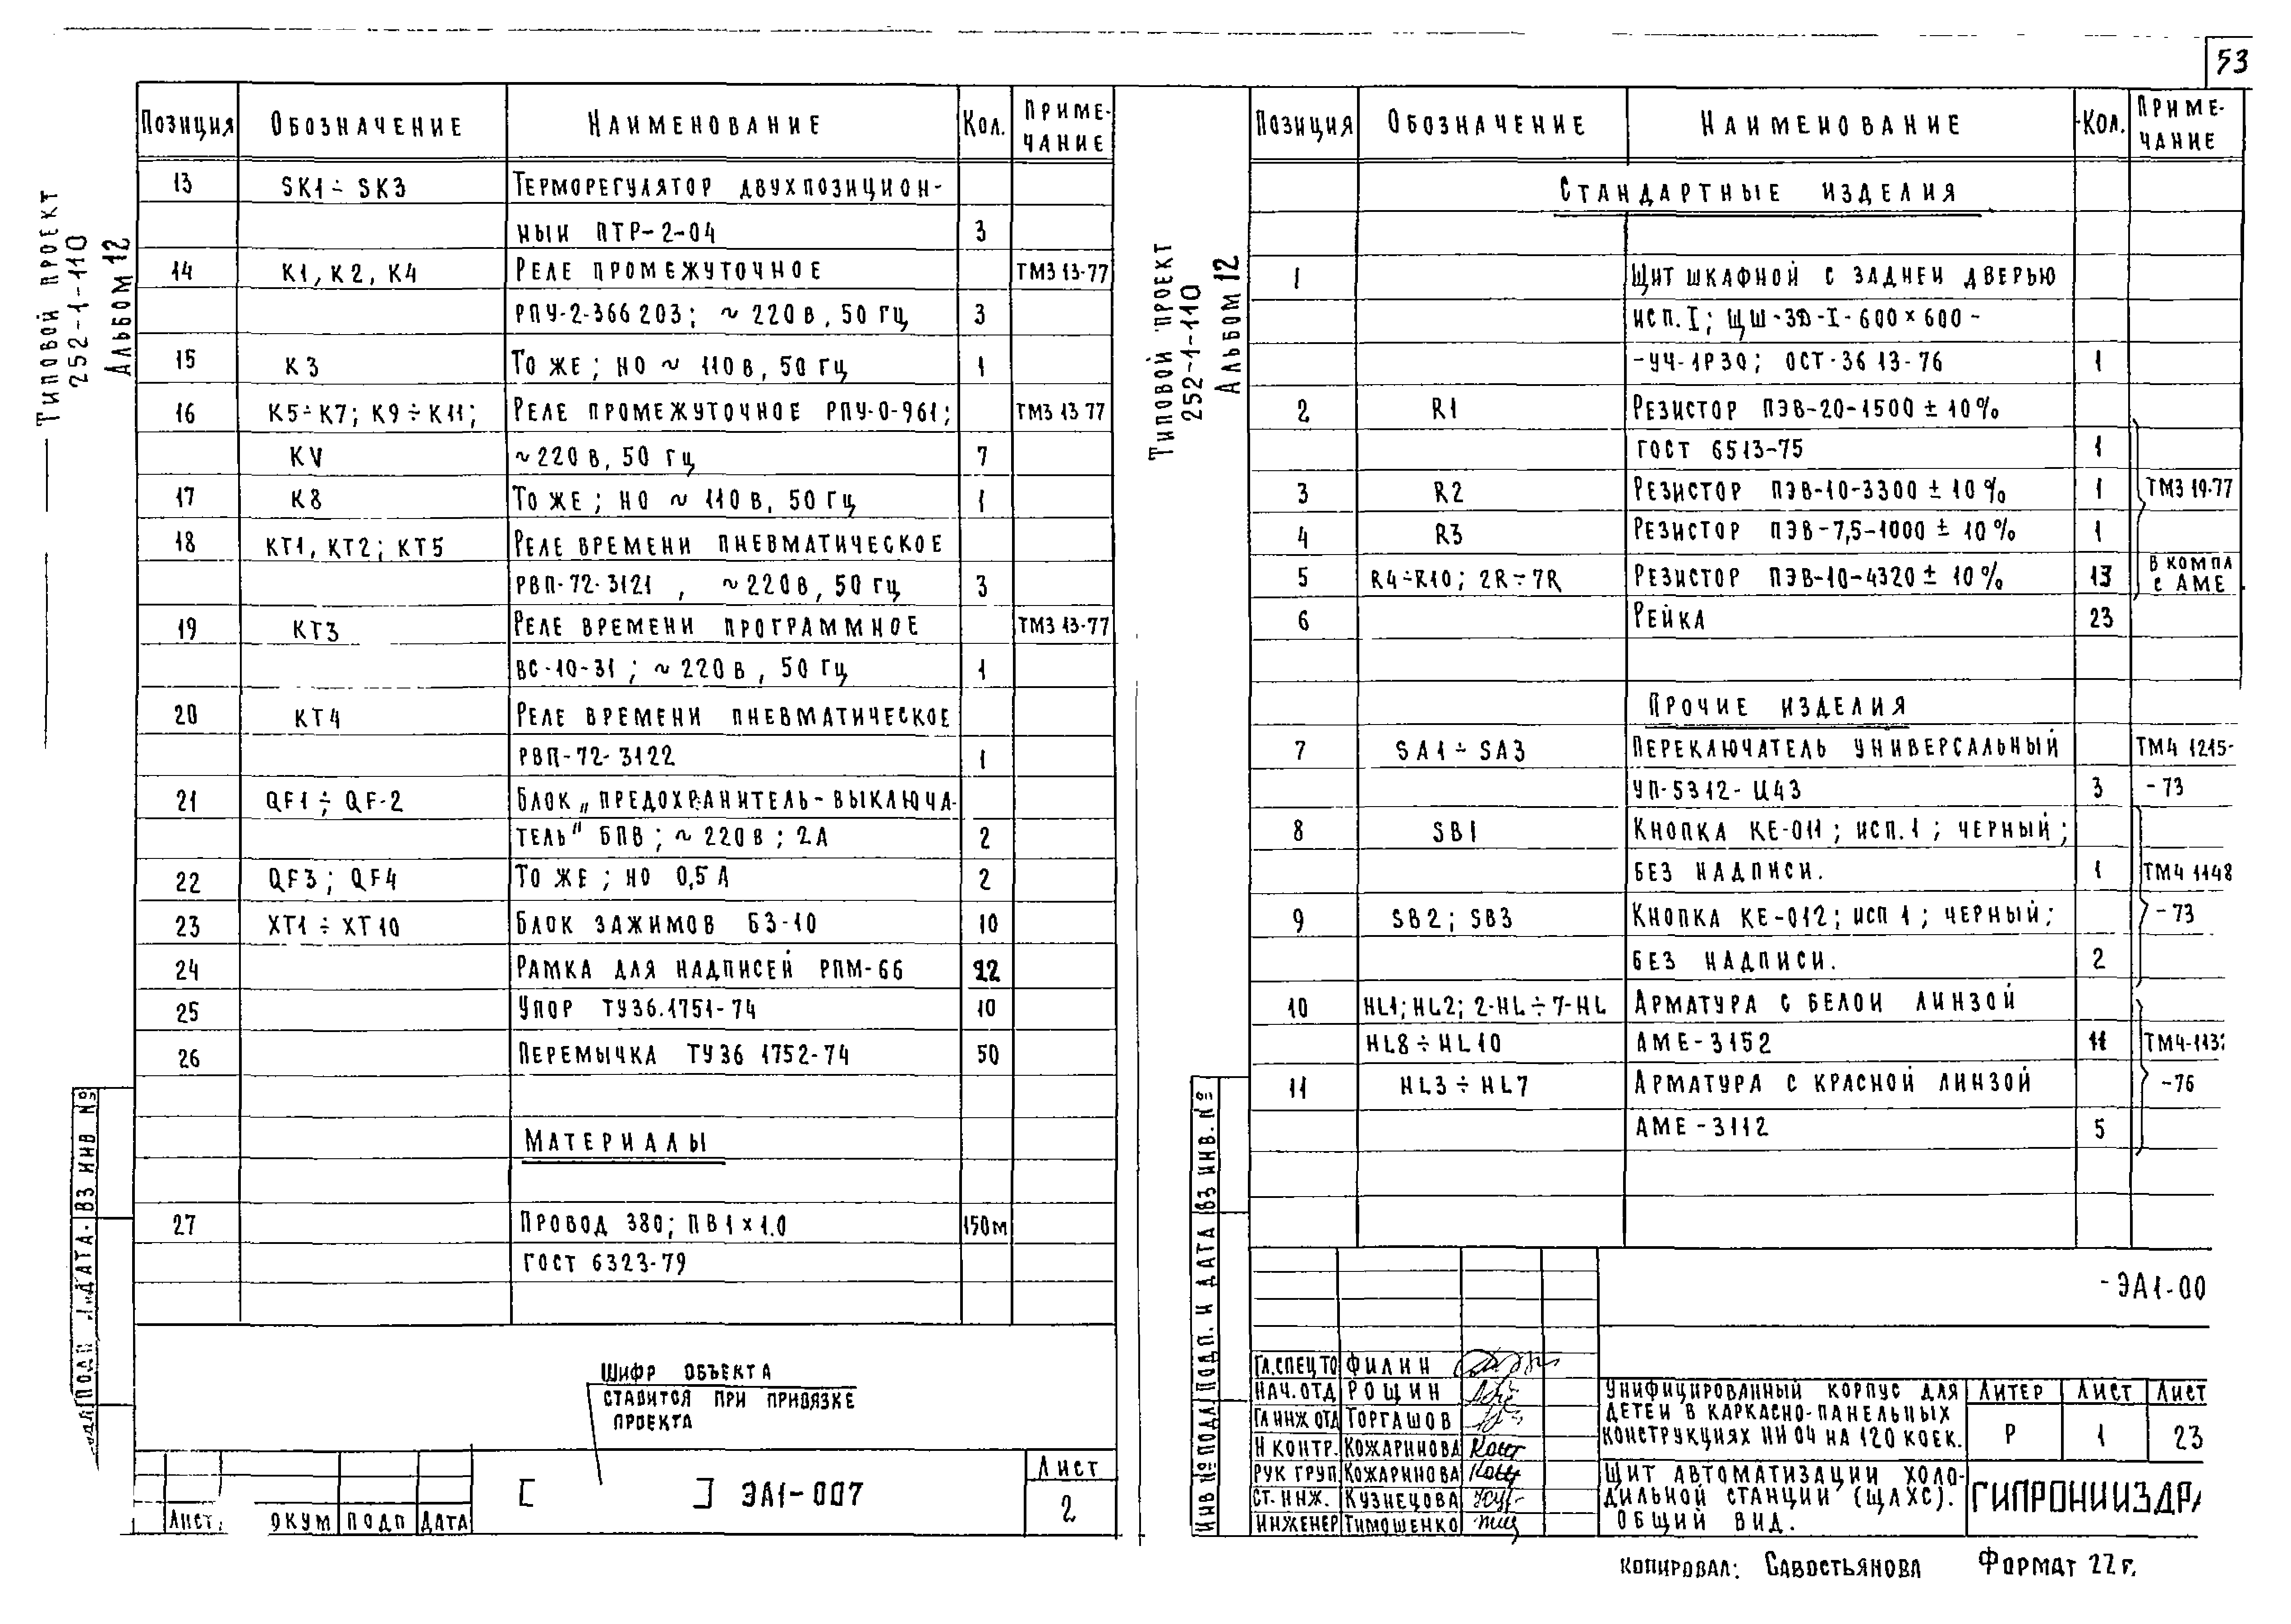 53
Типовой проект
252-1-110
Альбом 12
Позиция Обозначение Наименование Кол. Приме-
чание
13 SK1÷SK3 Терморегулятор двухпозицион-
ный ПТР-2-04 3
14 К1, К2, К4 Реле промежуточное ТМ3 13-77
РПУ-2-366203; ~220в, 50 гц 3
15 К3 То же; но ~110в, 50 гц 1
16 К5÷К7; К9÷К11; Реле промежуточное РПУ-0-961; ТМ3 13 77
KV ~220в, 50 гц 7
17 К8 То же; но ~110в, 50 гц 1
18 КТ1, КТ2; КТ5 Реле времени пневматическое
РВП-72-3121, ~220в, 50 гц 3
19 КТ3 Реле времени программное ТМ3 13-77
ВС-10-31; ~220в, 50 гц 1
20 КТ4 Реле времени пневматическое
РВП-72-3122 1
21 QF1÷QF-2 Блок „предохранитель-выключа-
тель" БПВ; ~220в; 2А 2
22 QF3; QF4 То же; но 0,5А 2
23 ХТ1÷ХТ10 Блок зажимов БЗ-10 10
24 Рамка для надписей РПМ-66 22
25 Упор ТУ36.1751-74 10
26 Перемычка ТУ36 1752-74 50
Материалы
27 Провод 380; ПВ1×1.0 150м
ГОСТ 6323-79
Шифр объекта
ставится при привязке
проекта
[ ] ЭА1-007
Лист
2
Лист. ОКУМ Подп Дата
Вз инв №
Подп и дата.
Типовой проект
252-1-110
Альбом 12
Позиция Обозначение Наименование Кол. Приме-
чание
Стандартные изделия
1 Щит шкафной с задней дверью
исп.I; ЩШ-ЗД-I-600×600-
-УЧ-1Р30; ОСТ-36 13-76 1
2 R1 Резистор ПЭВ-20-1500±10%
ГОСТ 6513-75 1
3 R2 Резистор ПЭВ-10-3300±10% 1 ТМ3 19-77
4 R3 Резистор ПЭВ-7,5-1000±10% 1
5 R4÷R10; 2R÷7R Резистор ПЭВ-10-4320±10% 13 В компл
с АМЕ
6 Рейка 23
Прочие изделия
7 SA1÷SA3 Переключатель универсальный ТМ4 1215-
УП-5312-Ц43 3 -73
8 SB1 Кнопка КЕ-011; исп.1; черный;
без надписи. 1 ТМ4 1148
9 SB2; SB3 Кнопка КЕ-012; исп 1; черный; -73
без надписи. 2
10 HL1; HL2; 2-HL÷7-HL Арматура с белой линзой
HL8÷HL10 АМЕ-3152 11 ТМ4-113
11 HL3÷HL7 Арматура с красной линзой -76
АМЕ-3112 5
-ЭА1-00
Гл.спец ТО Филин
Нач.отд Рощин
Гл инж отд Торгашов
Н контр. Кожаринова
Рук груп Кожаринова
Ст. инж. Кузнецова
Инженер Тимошенко
Унифицированный корпус для
детей в каркасно-панельных
конструкциях ИИ 04 на 120 коек.
Литер Лист Лист
Р 1 23
Щит автоматизации холо-
дильной станции (ЩАХС).
Общий вид.
ГИПРОНИИЗДРА
Инв № подл Подп. и дата Вз инв. №
Копировал: Савостьянова Формат 22г.